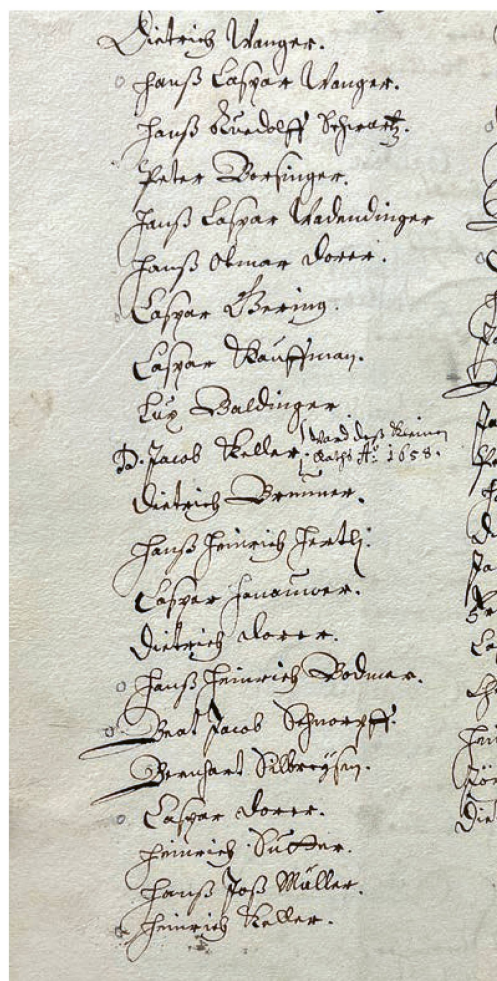 Dietrich Wanger.
Hanß Caspar Wanger.
Hanß Ruedolff Schwartz.
Peter Borsinger.
Hanß Caspar Wadendinger
Hanß Otmar Dorer.
Caspar Gering.
Caspar Kauffman.
Lux Baldinger
D. Jacob Keller. Ward deß Kleinen
Raths Aō. 1658.
Dietrich Brunner.
Hanß Heinrich Hertli.
Caspar Hanauwer.
Dietrich Dorer.
Hanß Heinrich Bodmer.
Beat Jacob Schnorpff.
Bernhart Silbereysen.
Caspar Dorer.
Heinrich Sutter.
Hanß Joß Müller.
Heinrich Keller.